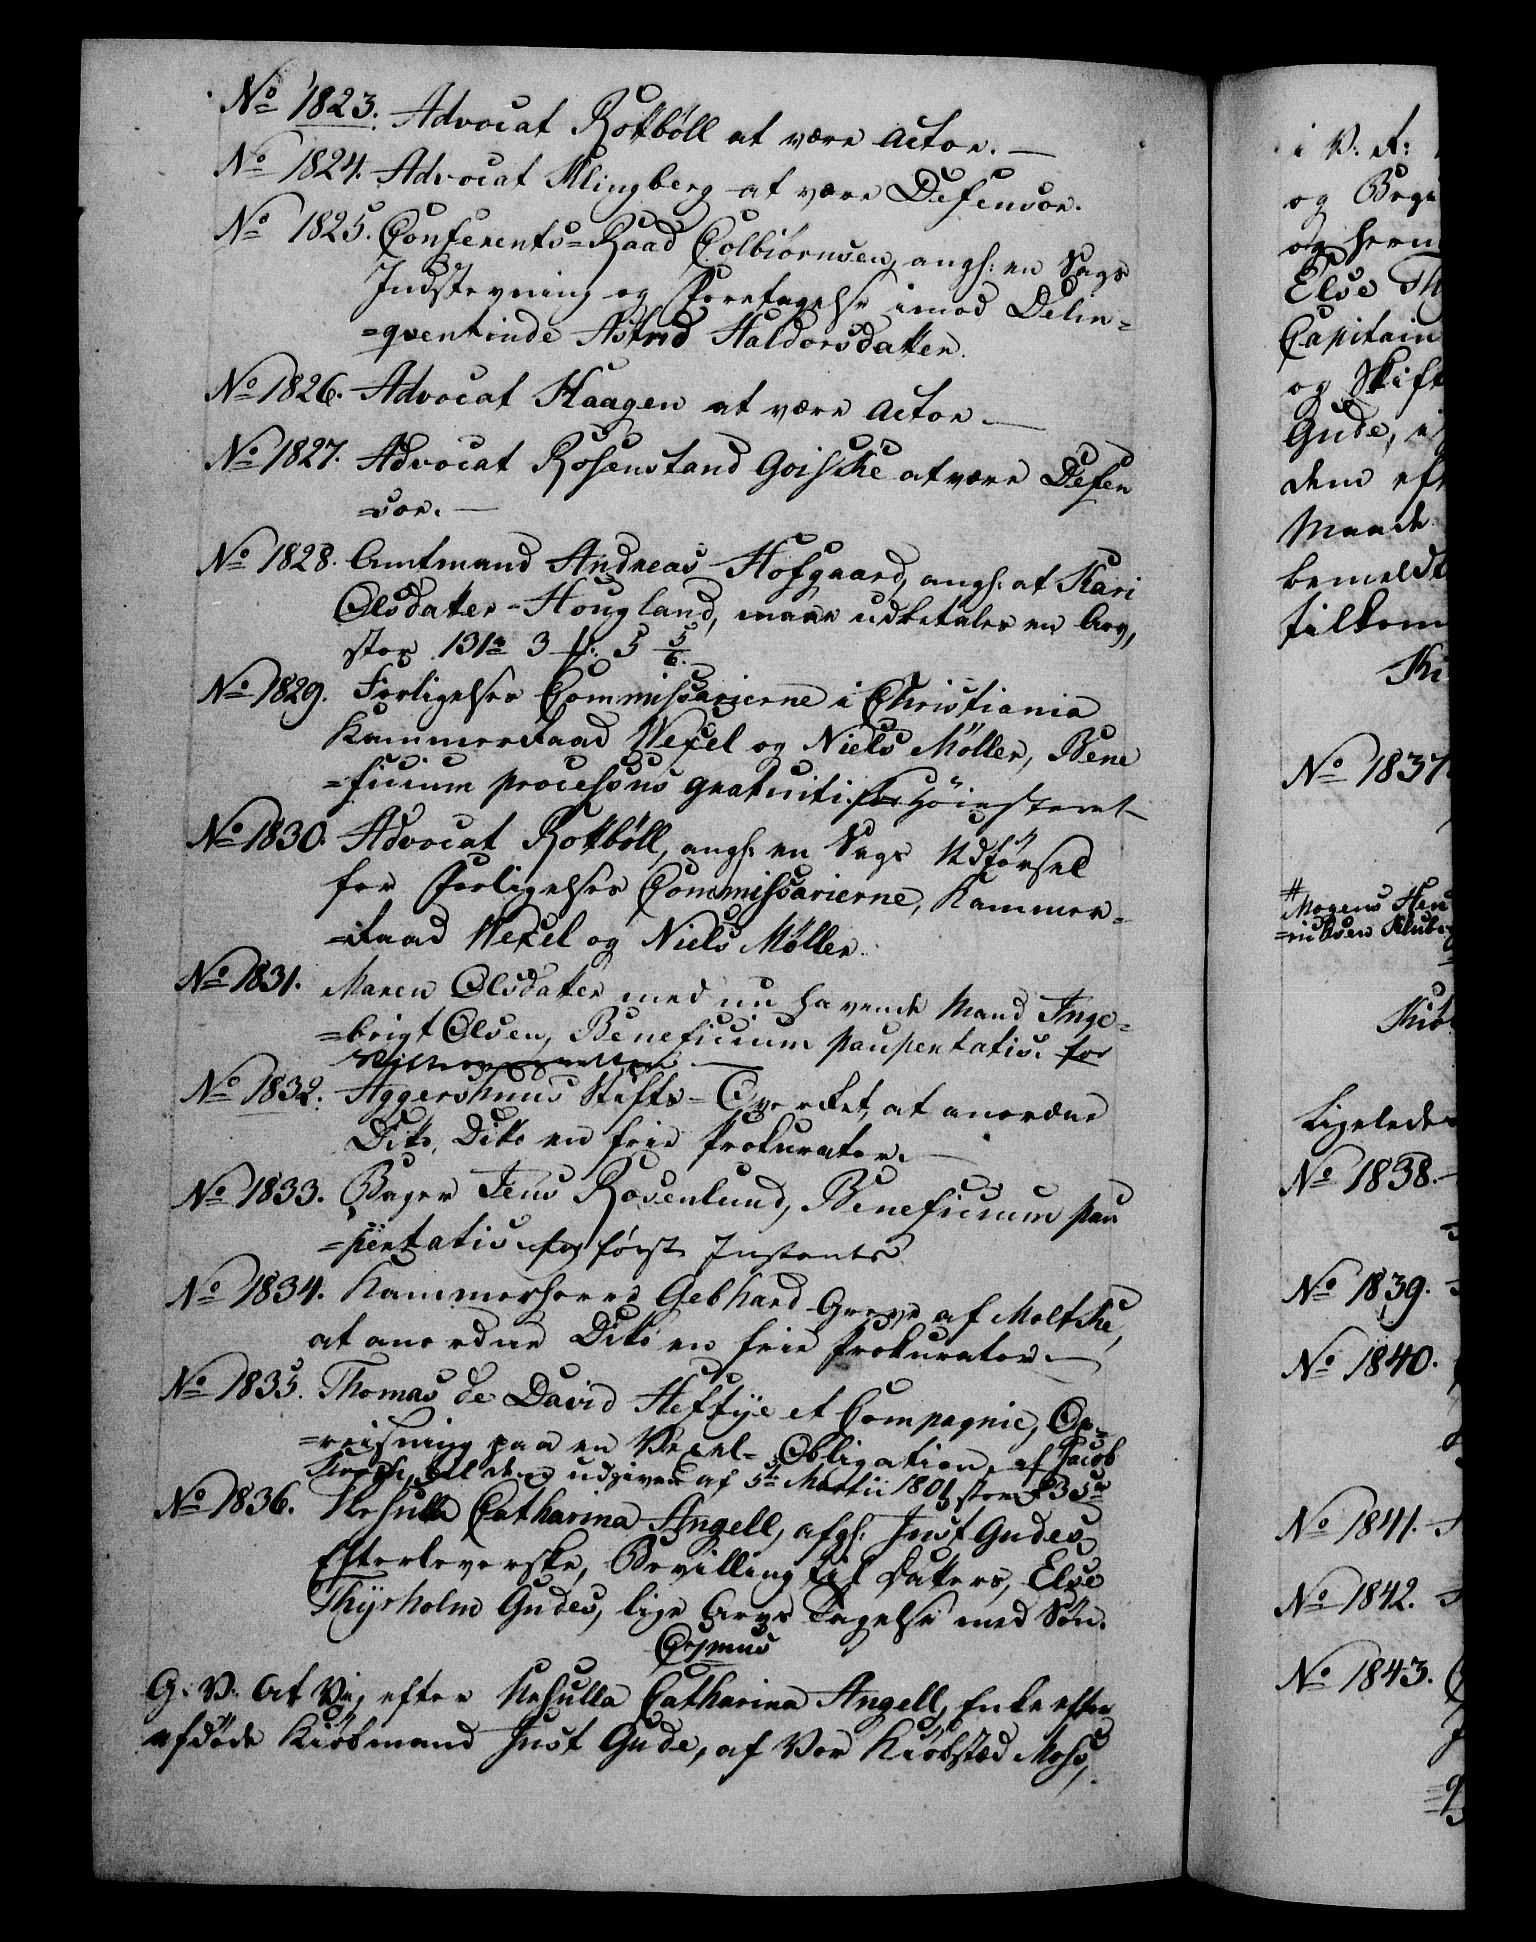 No 1823. Advocat Rottböll at være Actor. —
No 1824. Advocat Klingberg at være Defensor.
No 1825. Conferents-Raad Colbiörnsen, angl: en Sags
Indstevning og Foretagelse imod Delin-
-qventinde Astrid Haldorsdatter.
No 1826. Advocat Haagen at være Actor. —
No 1827. Advocat Rosenstand Goiske at være Defen
-sor. —
No 1828. Amtmand Andreas Hofgaard, angl: at Kari
Olsdatter Hougland, maae udbetales en Arv,
stor 131 rd 3 ß: 5 5/6.
No 1829. Forligelses Commissarierne i Christiania
Kammerraad Wexel og Niels Möller, Bene
-ficium processus gratuiti for Höiesteret
No 1830. Advocat Rottböll, angl: en Sags Udförsel
for Forligelses Commissarierne, Kammer-
-raad Wexel og Niels Möller.
No 1831. Maren Olsdatter med nu havende Mand Inge-
-brigt Olsen, Beneficium paupertatis. for
No 1832. Aggershuus Stifts-Overret, at anordne
Ditto, Ditto en frie Prokurator. —
No 1833. Bager Jens Rosenlund, Beneficium pau
-pertatis for förste Instants
No 1834. Kammerherre Gebhard Greve af Moltke,
at anordne Ditto en frie Prokurator. —
No 1835. Thomas de David Heftÿe et Compagnie, Op-
-reisning paa en Vexel-Obligation, af Jacob
udgiven af 5te Martii 1801 stor
No 1836. Ursulla Catharina Angell, afgl: Just Gudes
Efterleverske, Bevilling til Datters, Else
Thÿrholm Gudes, lige Arvs Tagelse med Søn.
Orsmus
G. V. At Vi, efter Ursulla Catharina Angell, Enke efter
afdöde Kiöbmand Just Gude, af Vor Kiöbstæd Moss,
i V: A:
og Begi
og herm
Else Th
Capitain
og Skift
Gude, i
dem eft
Maade
bemeldt
tilkom
No 1837.
#
Mogens Hen
-richsen
Ligeleder
No 1838.
No 1839.
No 1840.
No 1841.
No 1842.
No 1843.